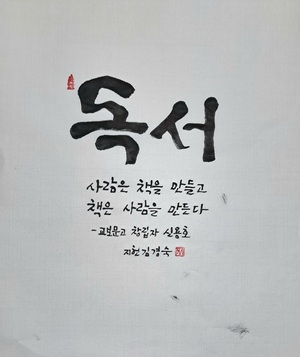 독서
사람은 책을 만들고
책은 사람을 만든다
-교보문고 창립자 신용호
지헌 김경숙